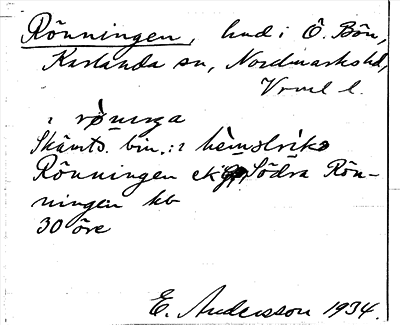 Rönningen, hmd i Ö. Bön,
Karlanda sn, Nordmarks hd,
Vrml l.
: rönıŋa
Skämts. bin.: i
Rönningen ekgp. Södra Rön-
ningen kb
30 öre
E. Andersson 1934.